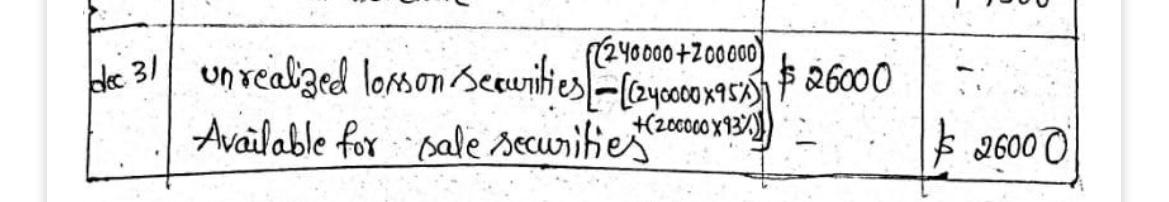 dec 31 unrealized loss on securities [(240000+200000) $ 26000 -
-[(240000x95%)
+(200000x93%)]]
Available for sale securities - $ 26000